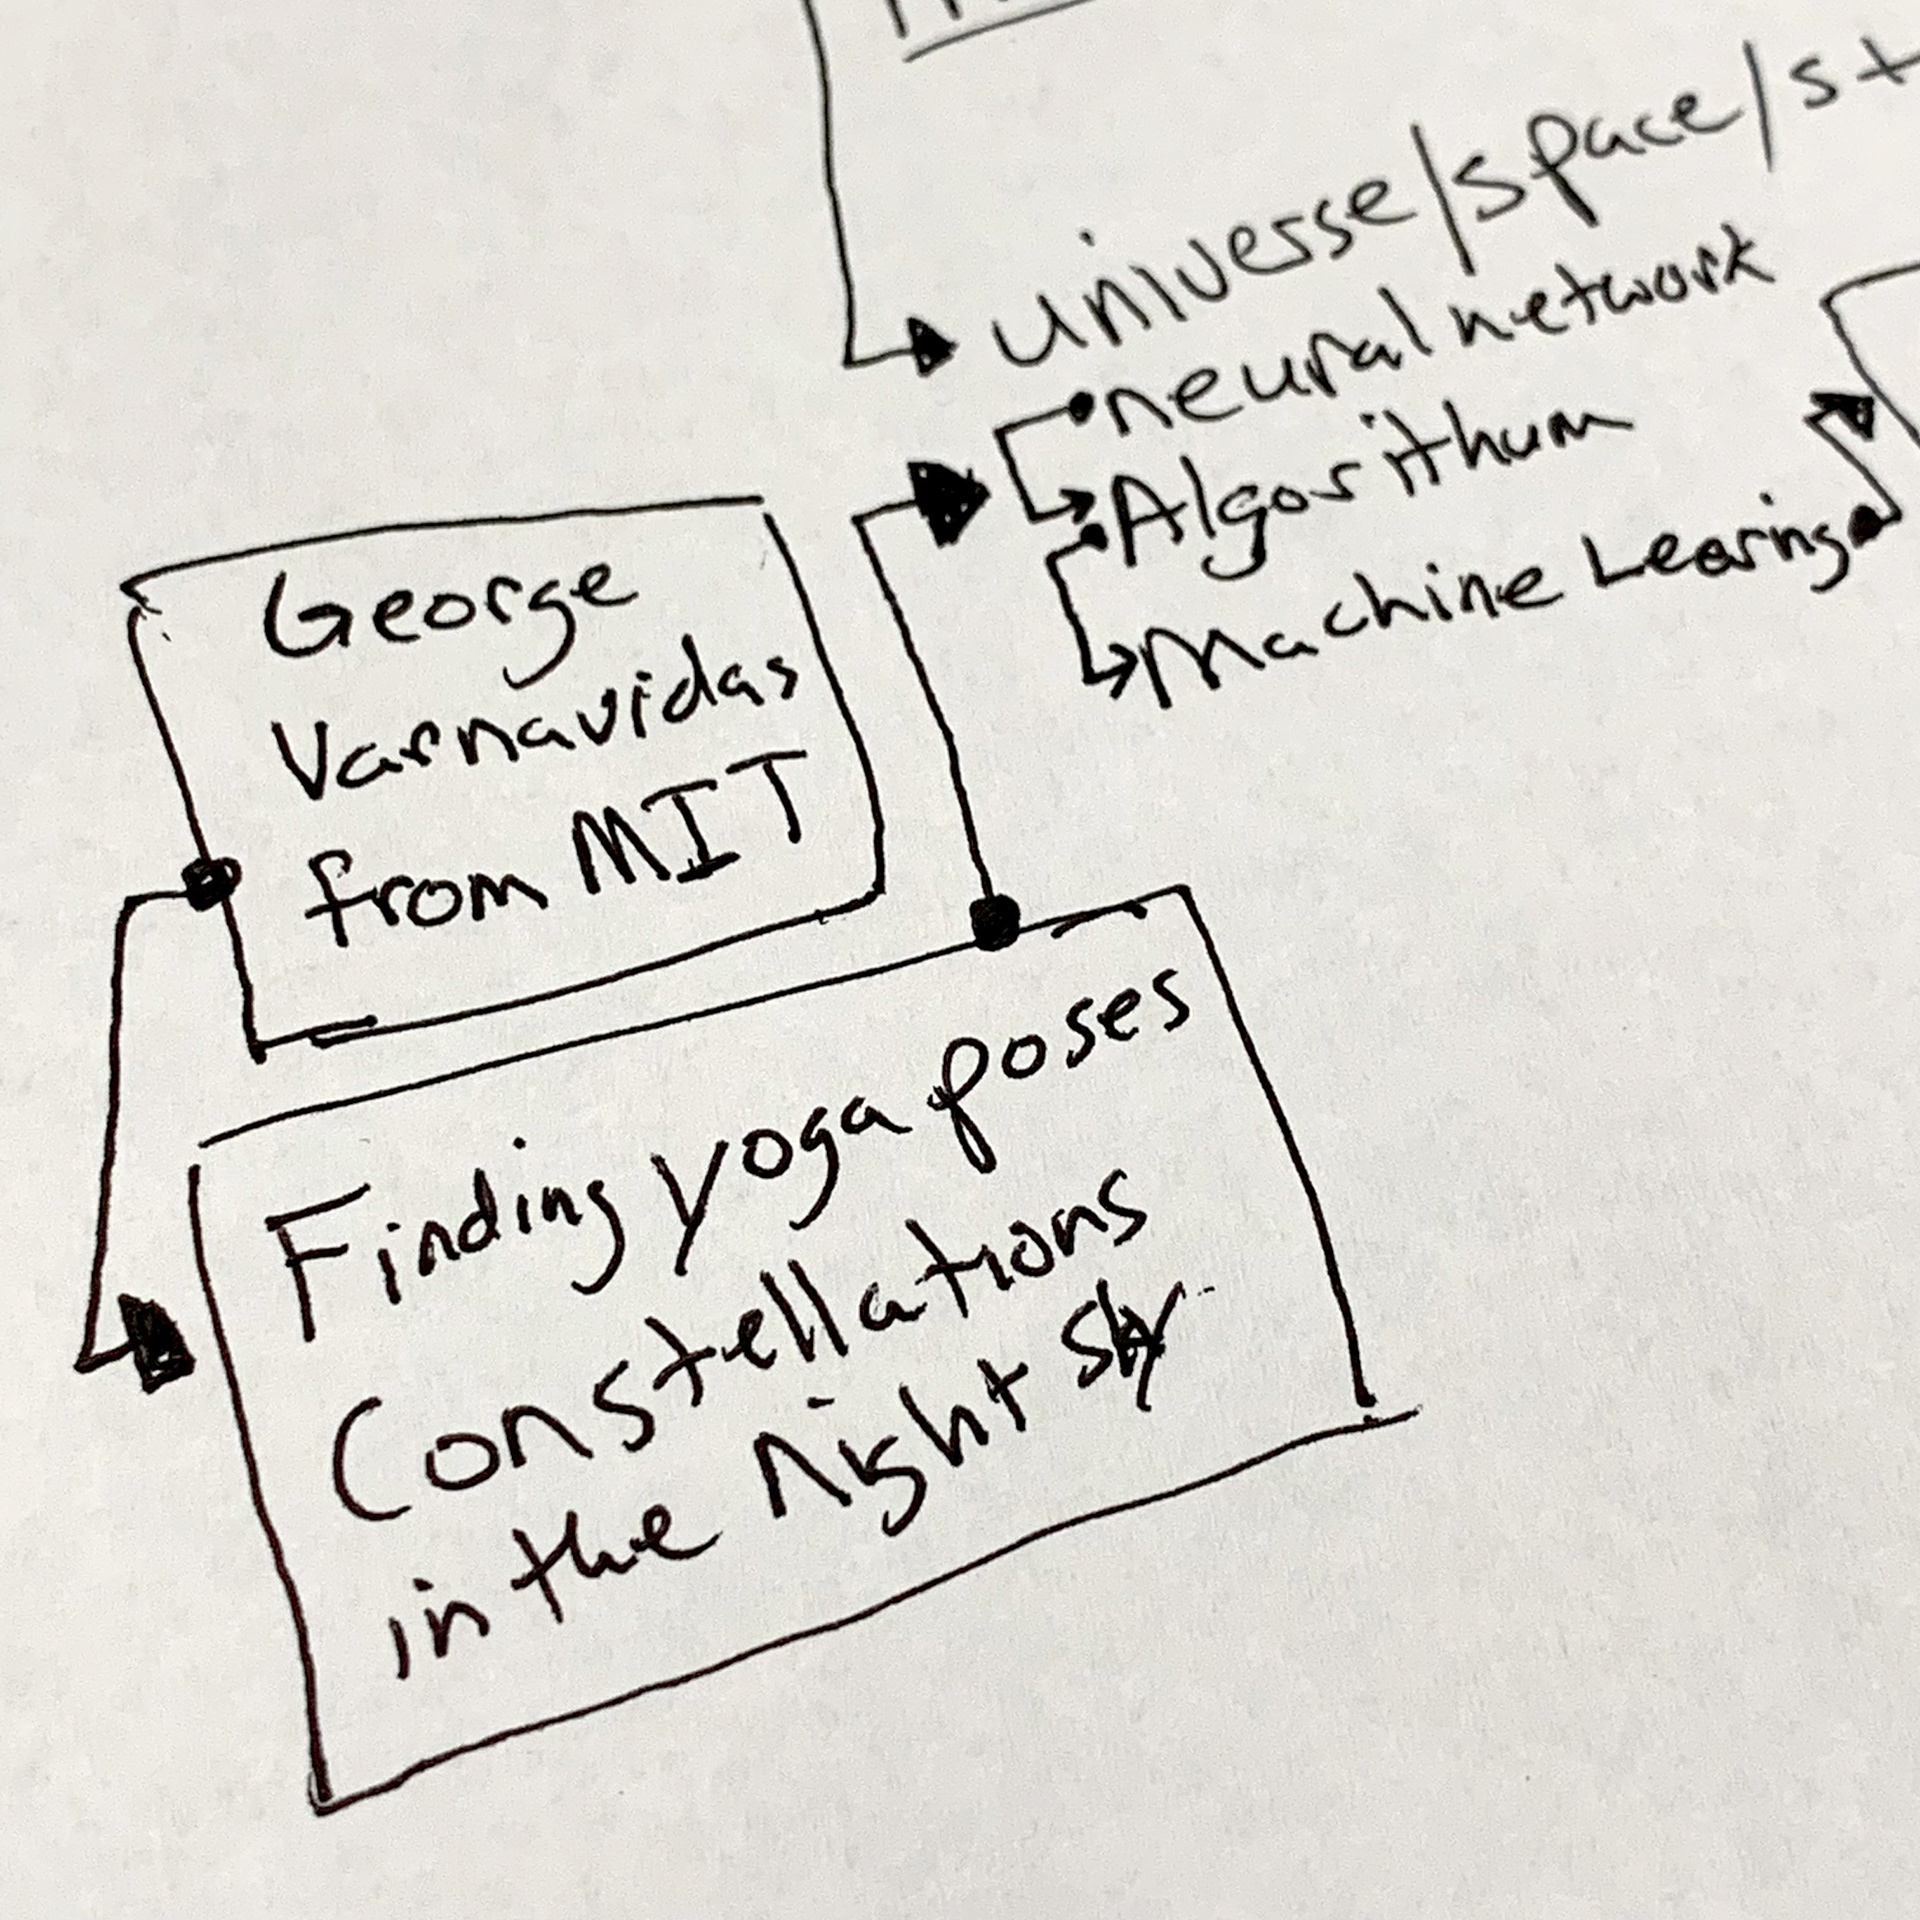 universe/space/st
neural network
Algorithum
Machine Learing
George
Varnavidas
from MIT
Finding yoga poses
Constellations
in the Night Sky